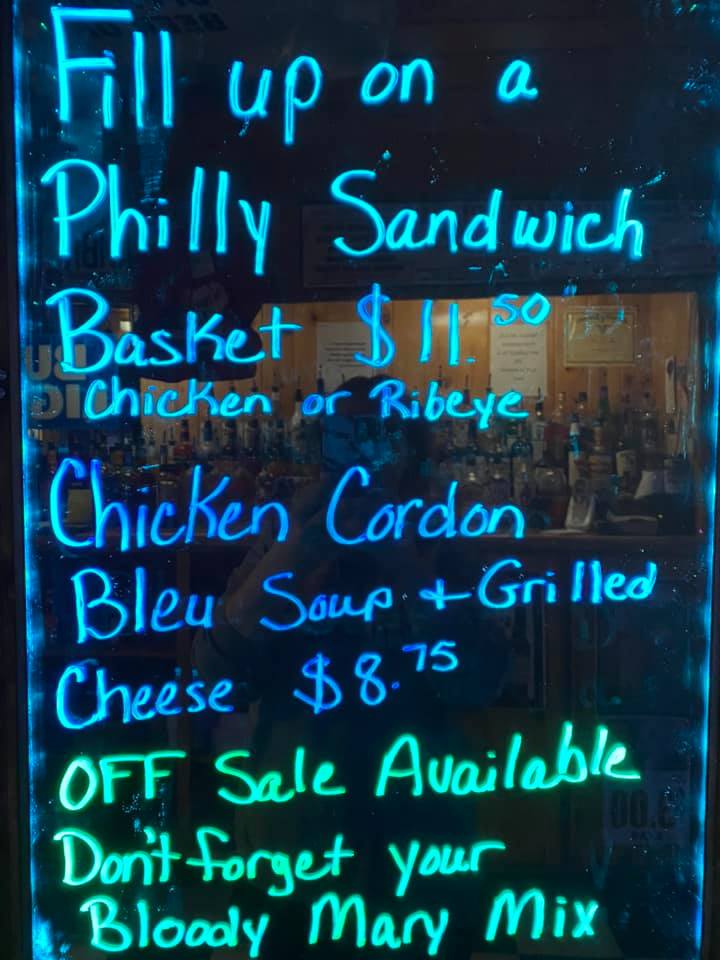 Fill up on a
Philly Sandwich
Basket $11.50
Chicken or Ribeye
Chicken Cordon
Bleu Soup + Grilled
Cheese $8.75
OFF Sale Available
Don't forget your
Bloody Mary Mix